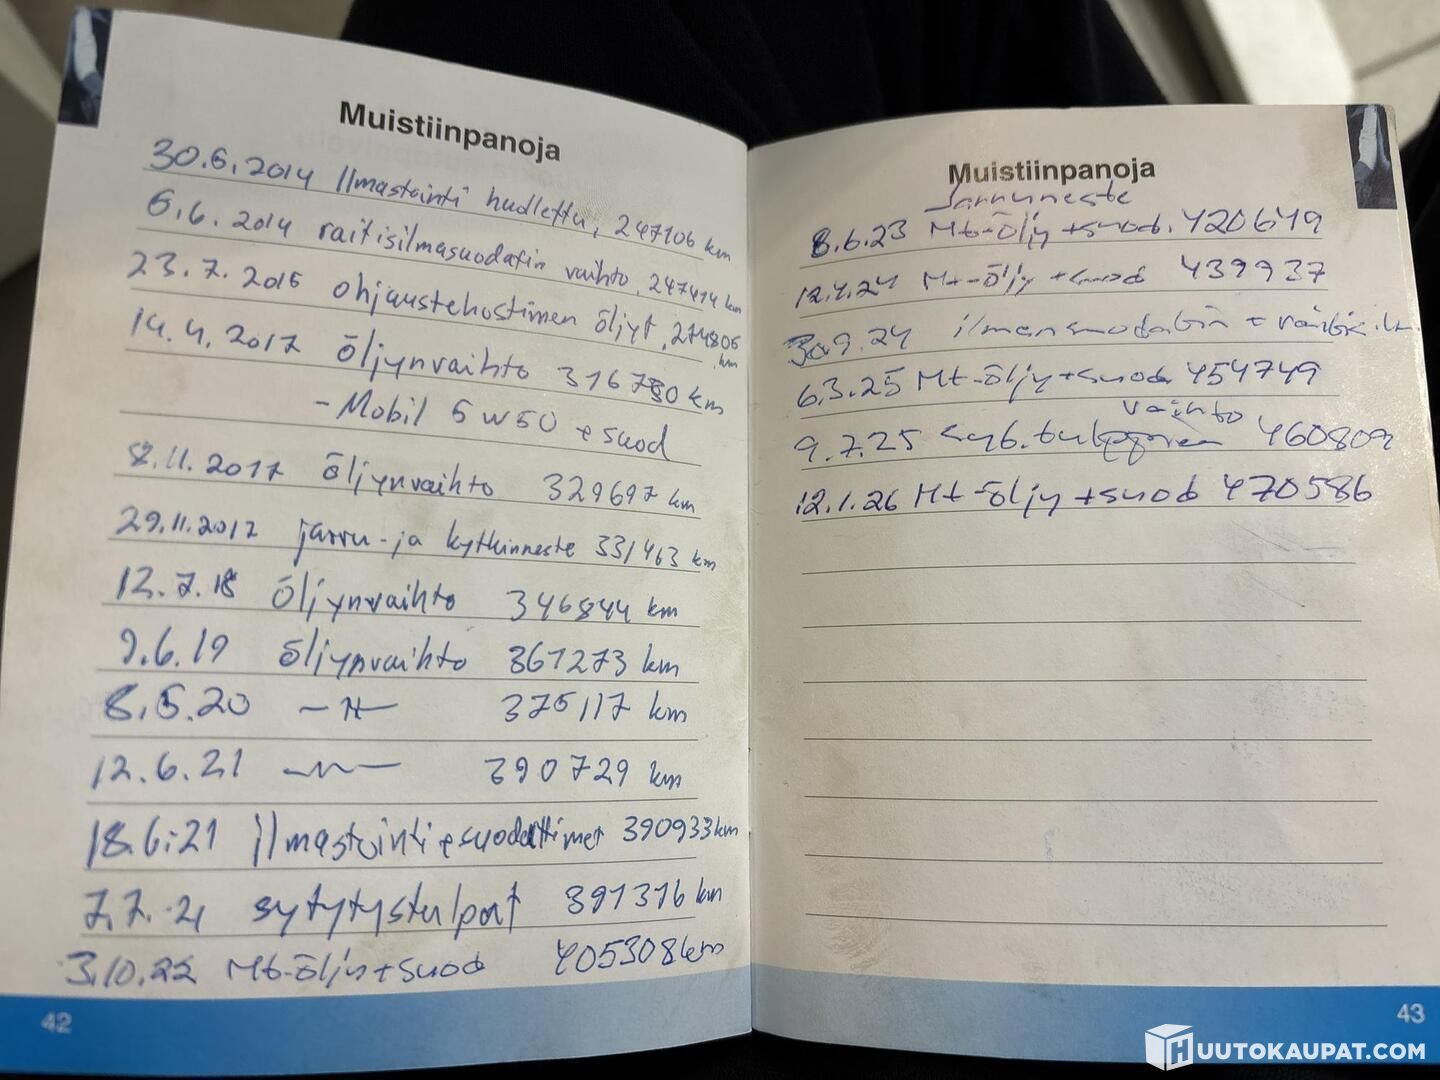 Muistiinpanoja
30.6.2014 Ilmastointi huollettu, 247106 km
6.6.2014 raitisilmasuodatin vaihto, 247414 km
23.7.2015 ohjaustehostimen öljyt, 274806 km
14.4.2017 öljynvaihto 316780 km
- Mobil 5W50 + suod
8.11.2017 öljynvaihto 329697 km
29.11.2017 jarru- ja kytkinneste 331463 km
12.7.18 öljynvaihto 346844 km
9.6.19 öljynvaihto 361273 km
8.5.20 -"- 375117 km
12.6.21 -"- 390729 km
18.6.21 ilmastointi + suodattimet 390933 km
7.7.21 sytytystulpat 391316 km
3.10.22 Mt-öljy + suod 405308 km
42
Muistiinpanoja
Jarruneste
8.6.23 Mt-öljy + suod. 420649
12.4.24 Mt-öljy + suod 439937
30.9.24 ilmansuodatin + raitis ilm
6.3.25 Mt-öljy + suod 454749
vaihto
9.7.25 syt. 460809
12.1.26 Mt-öljy + suod 470586
43
HUUTOKAUPAT.COM